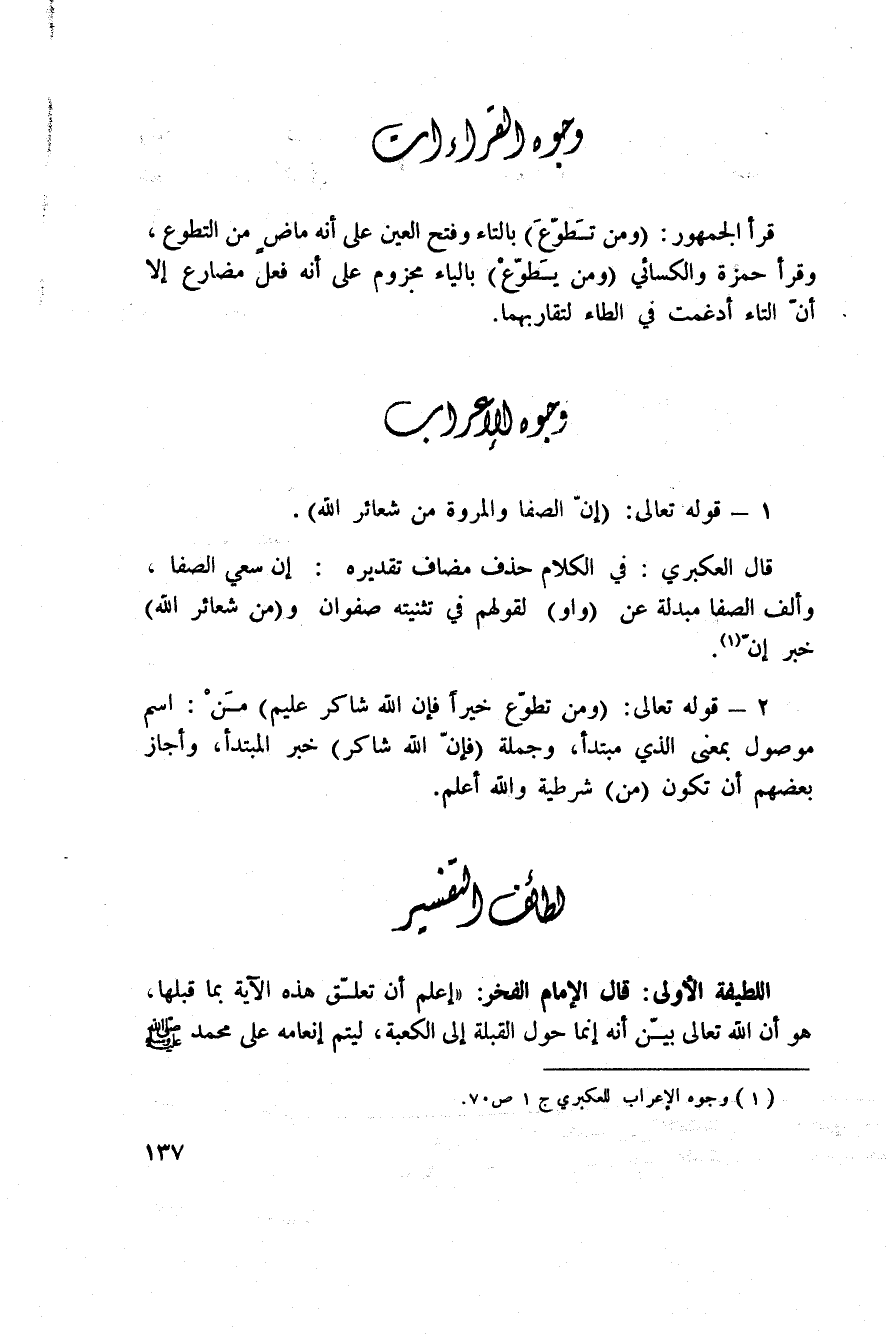 وجوه القراءات
قرأ الجمهور : (ومن تَطوّعَ) بالتاء وفتح العين على أنه ماضٍ من التطوع ،
وقرأ حمزة والكسائي (ومن يَطوّعْ) بالياء مجزوم على أنه فعل مضارع إلا
أنّ التاء أدغمت في الطاء لتقاربهما.
وجوه الإعراب
١ – قوله تعالى: (إنّ الصفا والمروة من شعائر الله) .
قال العكبري : في الكلام حذف مضاف تقديره : إن سعي الصفا ،
وألف الصفا مبدلة عن (واو) لقولهم في تثنيته صفوان و(من شعائر الله)
خبر إنّ(١).
٢ – قوله تعالى: (ومن تطوّع خيراً فإن الله شاكر عليم) مَنْ : اسم
موصول بمعنى الذي مبتدأ، وجملة (فإنّ الله شاكر) خبر المبتدأ، وأجاز
بعضهم أن تكون (من) شرطية والله أعلم.
لطائف التفسير
اللطيفة الأولى: قال الإمام الفخر: «إعلم أن تعلّق هذه الآية بما قبلها،
هو أن الله تعالى بيّن أنه إنما حول القبلة إلى الكعبة، ليتم إنعامه على محمد ﷺ
(١) وجوه الإعراب للعكبري ج ١ ص٧٠.
١٣٧